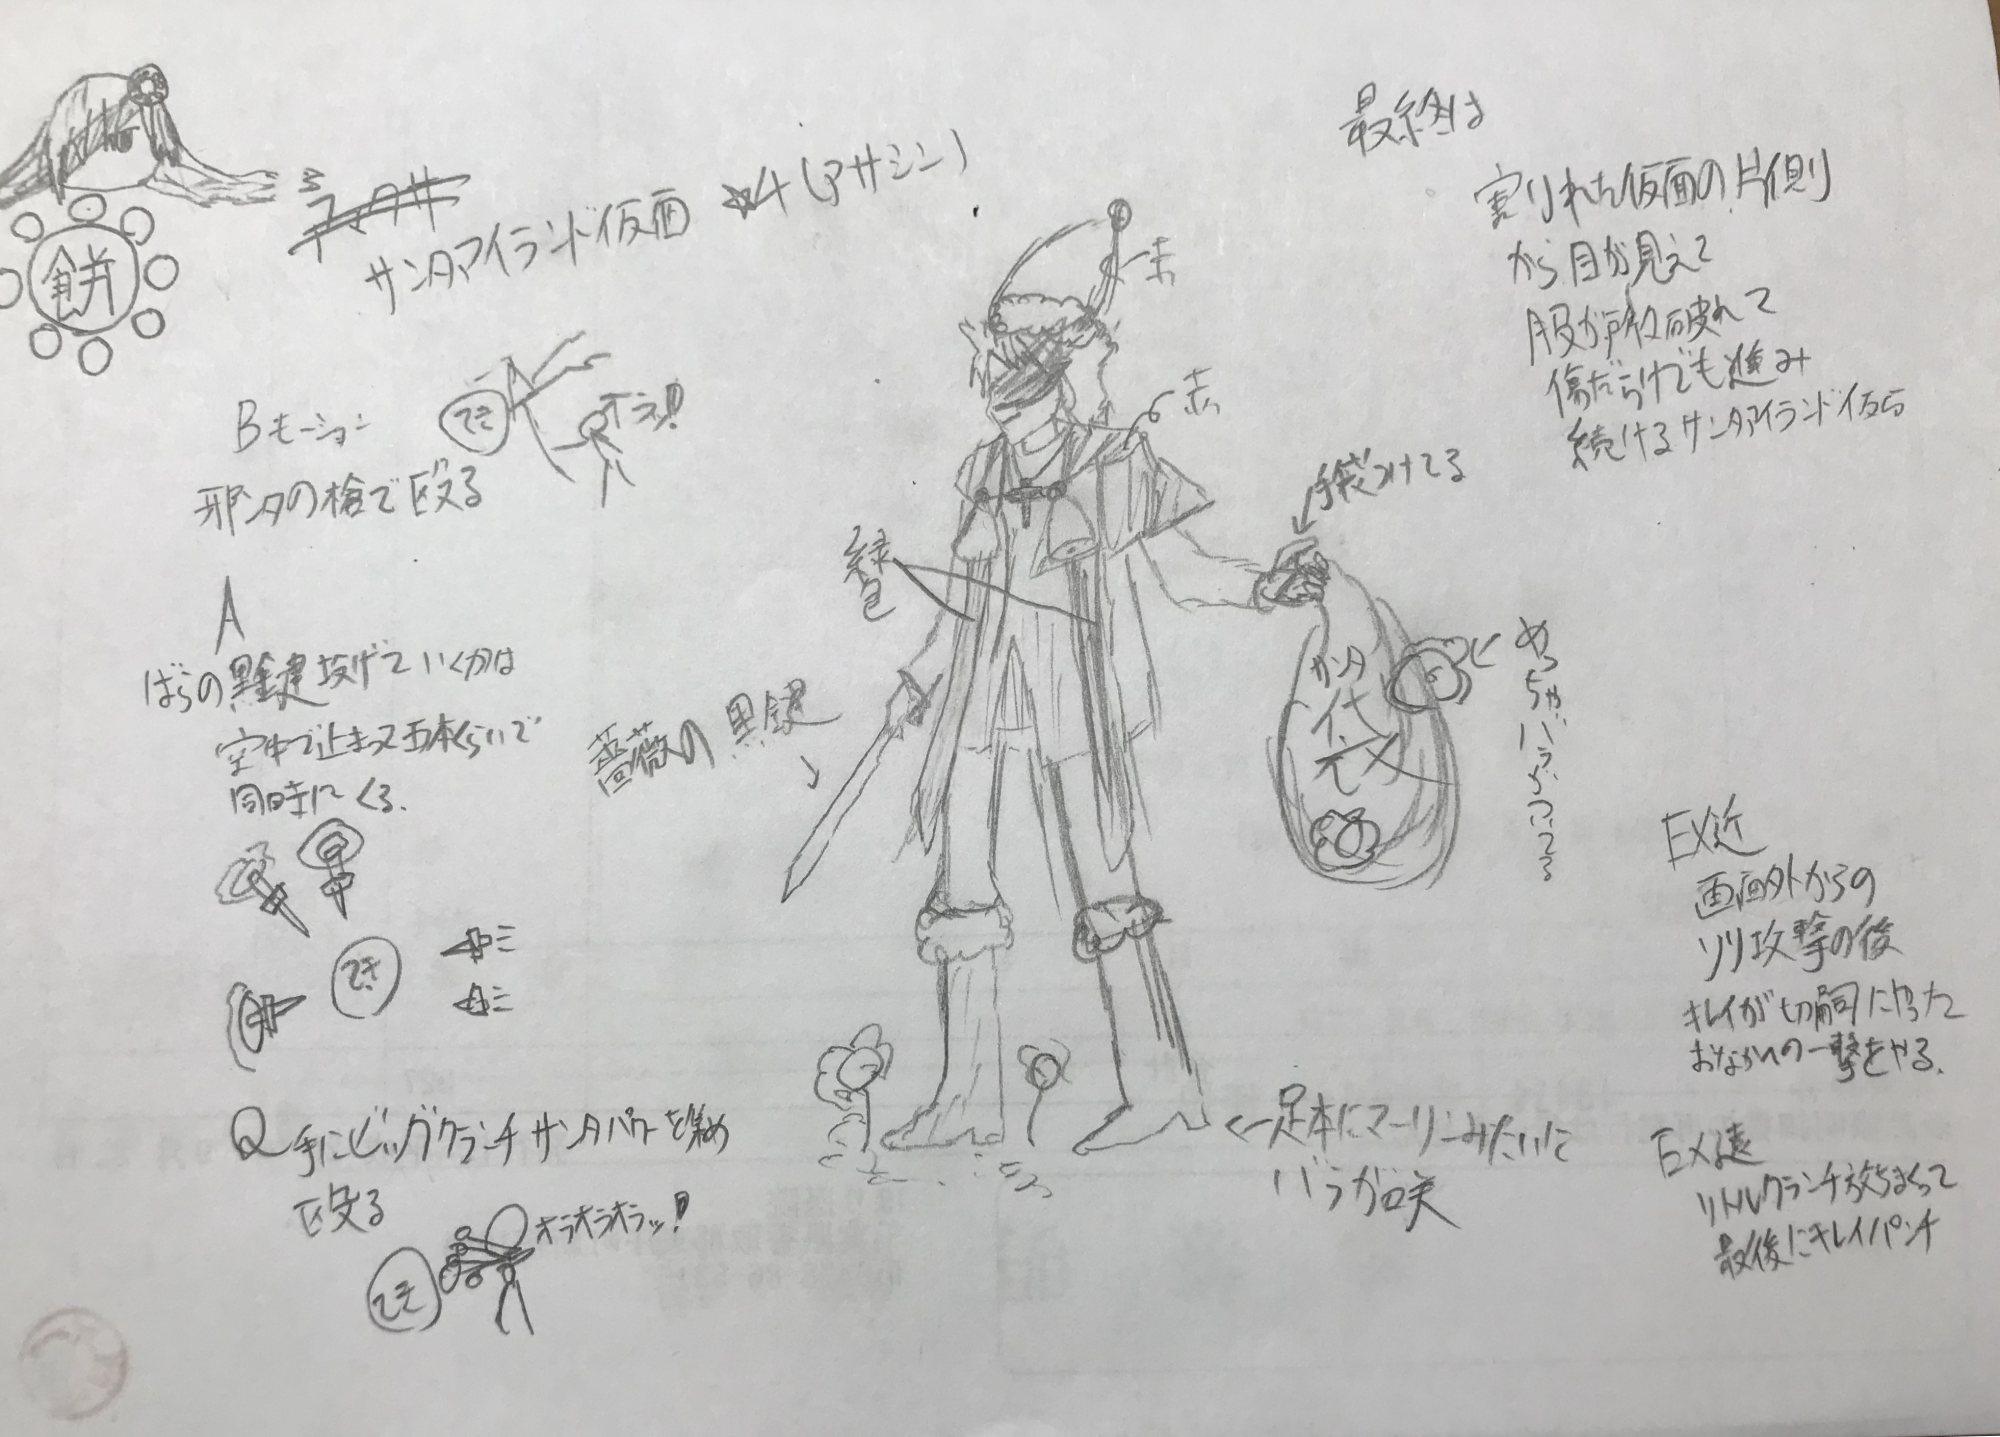 餅
サンタアイランド仮面 ★4(アサシン)
最終は
割れた仮面の片側
から目が見えて
服が所々破れて
傷だらけでも進み
続けるサンタアイランド仮面
赤
赤
手袋つけてる
緑色
Bモーション
邪ンタの槍で殴る
てき
オラ!
A
ばらの黒鍵投げていくかは
空中で止まって五本くらいで
同時にくる.
てき
薔薇の黒鍵
サンタ
代
め
ちゃ
バラがついてる
Q 手にビッグクランチサンタパワーを集め
殴る
オラオラオラッ!
てき
←足本にマーリンみたいに
バラが咲
EX近
画面外からの
ソリ攻撃の後
キレイが切嗣にやった
おなかへの一撃をやる.
EX遠
リトルクランチ放ちまくって
最後にキレイパンチ